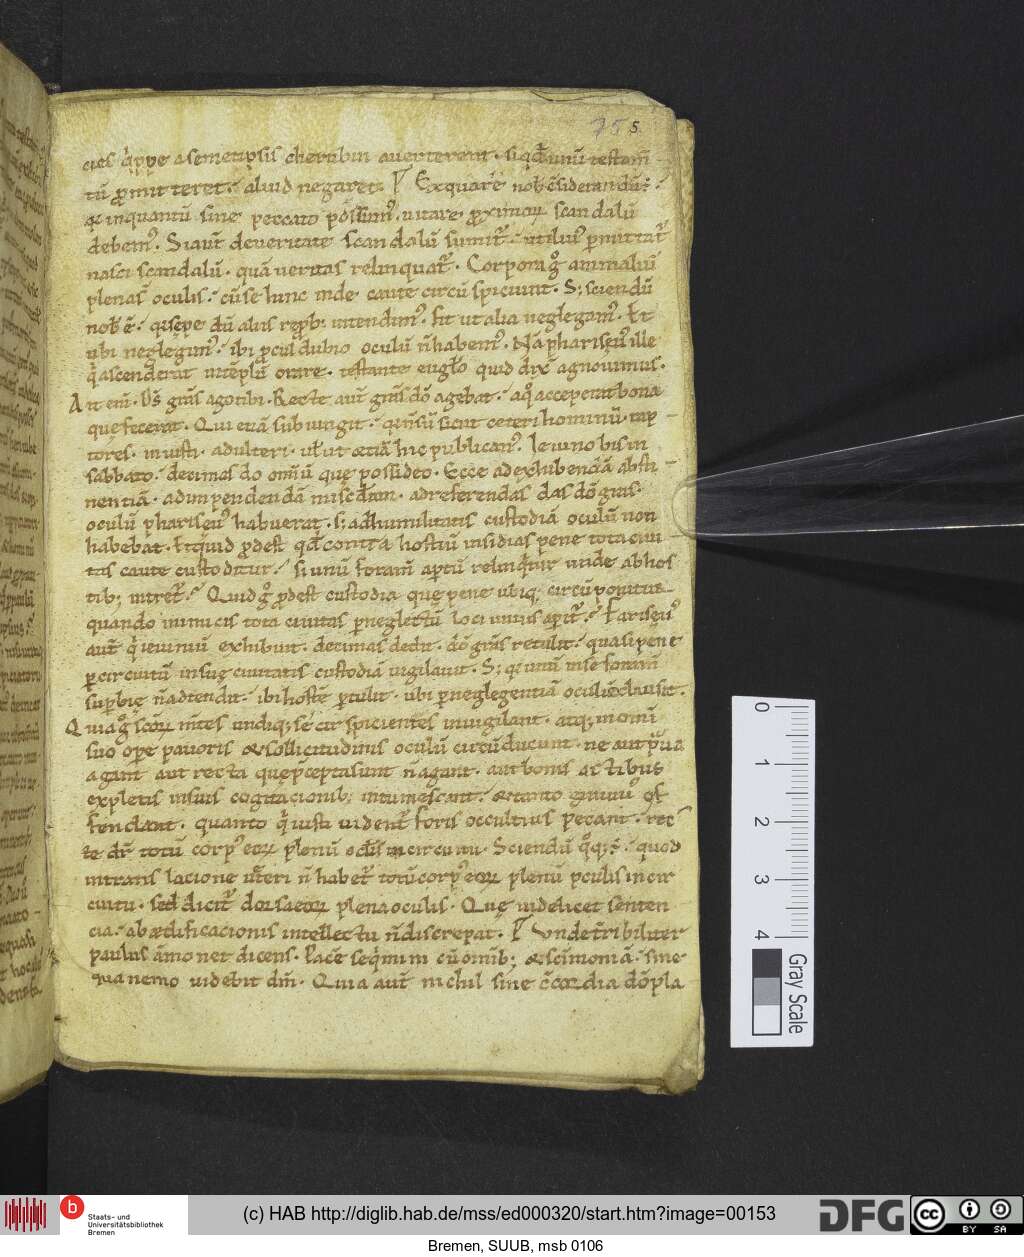 75 5
cies q̇ppe a semetipsis cherubin auerterent. si qd̄ unū testam̄
tū ꝓmitteret. aliud negaret. Ex qua re nob̄ c̄siderandū
qͣ inquantū sine peccato possumꝰ uitare ꝓximoꝝ scandalū
debemꝰ. Si aut̄ de ueritate scandalū sumit̄. utiliuꝰ ꝑmittat̄
nasci scandalū. quā ueritas relinquat̄. Corpora g̊ animaliū
plena s̄ oculis. cū se hinc inde caute circū spiciunt. S; sciendū
nob̄ ē. q sepe dū aliis reb; intendimꝰ. fit ut alia neglegamꝰ. Et
ubi neglegimꝰ. ibi ꝓcul dubio oculū n̄ habemꝰ. Nā phariseuꝰ ille
q̇ ascenderat in tēplū orare. testante eugl̄io quid dix̄ agnouimus.
Ait eni. Ds̄ gr̄as ago tibi. Recte aut̄ gr̄as dō agebat. a q̊ acceperat bona
que fecerat. Qui etiā subiungit. q n̄ sū sicut ceteri hominū. rap
tores. iniusti. adulteri. uł ut etiā hic publicanꝰ. Ieiuno bis in
sabbato. decimas do omiū que possideo. Ecce ad exhibendā absti
nentiā. ad inpendendā misc̄diam. ad referendas das dō gr̄as.
oculū phariseuꝰ habuerat. s; ad humilitatis custodiā oculū non
habebat. Et quid ꝓdest qd̄ contra hostiū insidias pene tota ciui
tas caute custoditur. si unū foram̄ aptū relinquitur unde ab hos
tib; intret̄. Quid g̊ ꝓdest custodia que pene ubiq; circū ponitur
quando inimicis tota ciuitas ꝑ neglectū loci unius apit̄. Fariseuꝰ
aut̄ q̇ ieiuniū exhibuit. decimas dedit. dō gr̄as retulit. quasi pene
ꝑ circuitū in sue ciuitatis custodiā uigilauit. S; q unū in se foram̄
supbie n̄ adtendit. ibi hostē ꝑtulit. ubi ꝑ neglegentiā oculū clausit.
Quia g̊ sc̄oꝝ m̄tes undiq; se circū spicientes inuigilant. atq; in omi
suo ope pauoris & sollicitudinis oculū circū ducunt. ne aut praua
agant aut recta que p̄cepta sunt n̄ agant. aut bonis actibus
expletis in suis cogitacionib; intumescant. & tanto grauiuꝰ of
fendant. quanto q̇ iusti uident̄ foris occultius peccant. rec
te dr̄ totū corpꝰ eoꝝ plenū oculis in circuitu. Sciendū quoq; ē. quod
in translacione ueteri n̄ habet̄ totū corpꝰ eoꝝ plenū oculis in cir
cuitu. sed dicit̄ dorsa eoꝝ plena oculis. Que uidelicet senten
cia. ab ædificacionis intellectu n̄ discrepat. Vnde tr̄ibiliter
paulus āmonet dicens. Pacē seqmini cū omib; & sc̄imoniā. sine
qua nemo uidebit dm̄. Quia aut̄ nichil sine c̄cordia dō pla
0
1
2
3
4
Gray Scale
b Staats- und
Universitätsbibliothek
Bremen
(c) HAB http://diglib.hab.de/mss/ed000320/start.htm?image=00153
DFG
cc BY SA
Bremen, SUUB, msb 0106